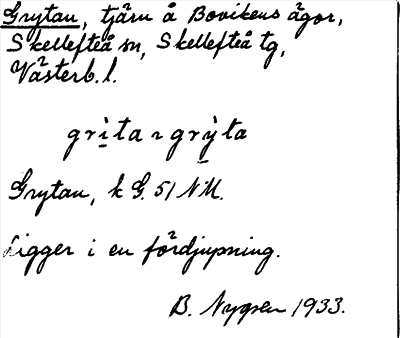 Grytan, tjärn å Bovikens ägor,
Skellefteå sn, Skellefteå tg,
Västerb. l.
grı̀ta ~ grỳta
Grytan, k G. 51 NM.
Ligger i en fördjupning.
B. Nygren 1933.